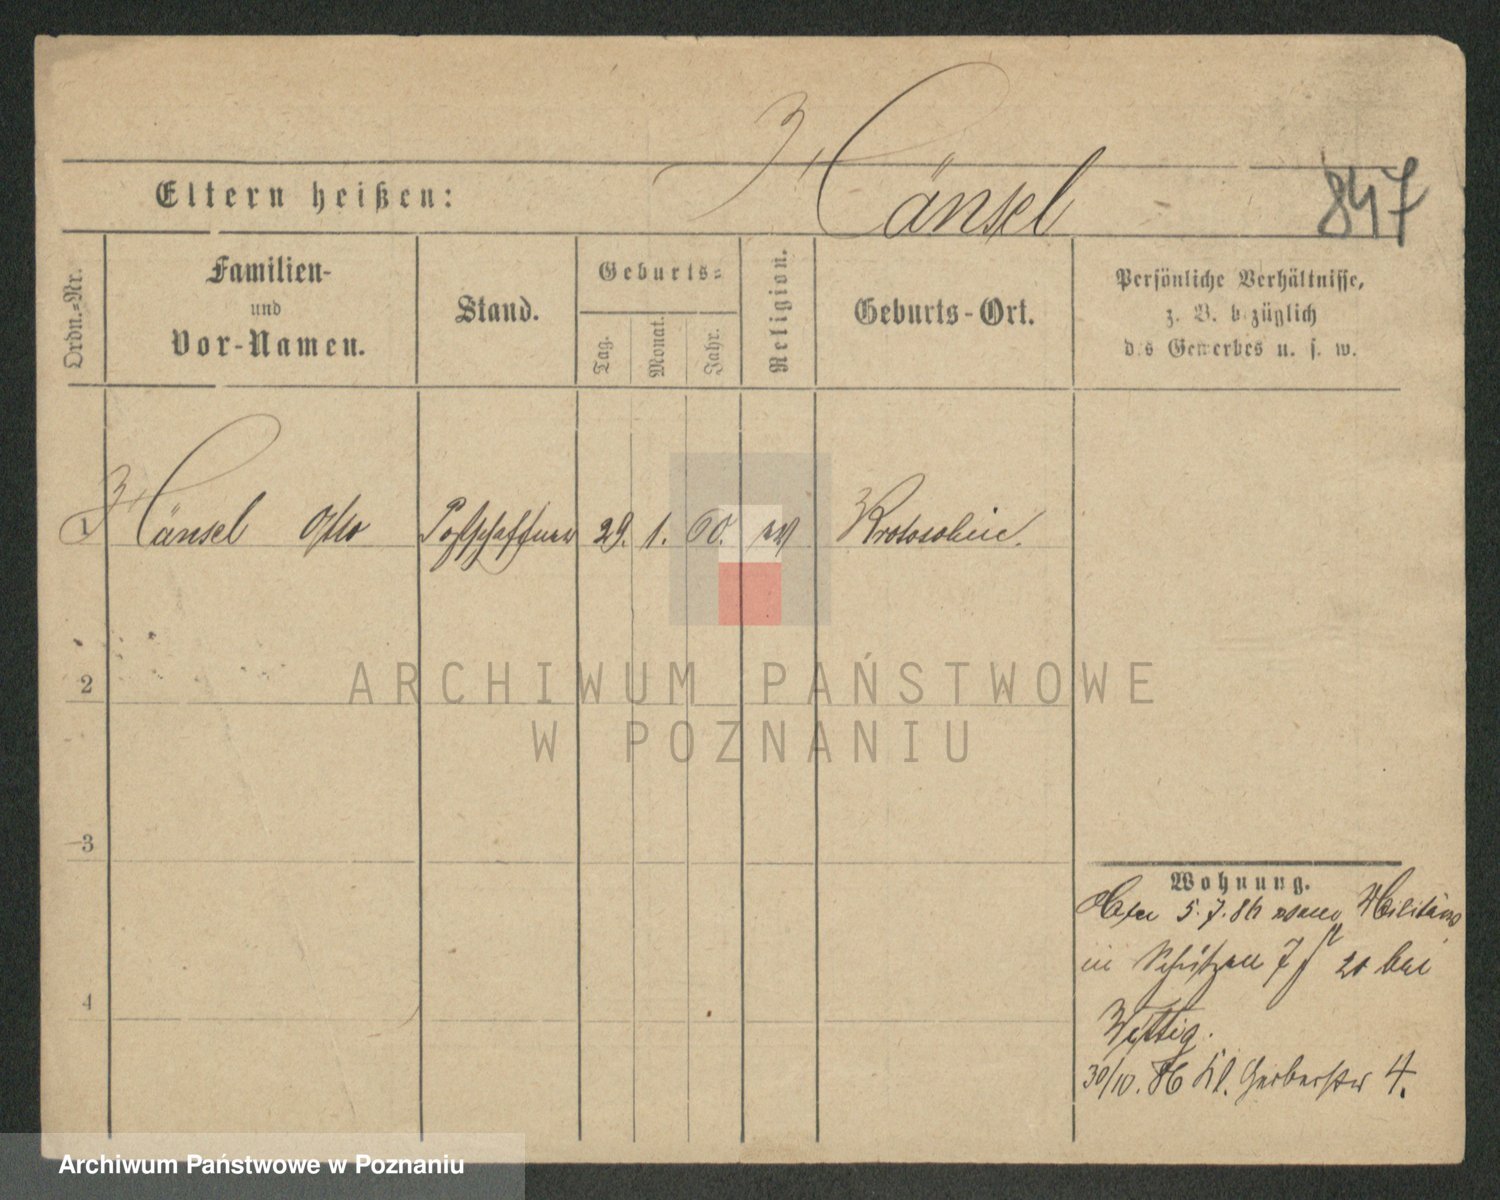 Hänsel
847
Eltern heißen:
Ordn.-Nr.
Familien-
und
Vor-Namen.
Stand.
Geburts-
Tag.
Monat.
Jahr.
Religion.
Geburts-Ort.
Persönliche Verhältnisse,
z. B. bezüglich
des Gewerbes u. s. w.
1 Hänsel Otto Postschaffner 29. 1. 60. ev
2
3
4
ARCHIWUM PAŃSTWOWE
W POZNANIU
Wohnung.
5.7.86 Militär
in Schützen 20 bei
Wittig.
30/10. 86 Kl. Gerberstr 4.
Archiwum Państwowe w Poznaniu